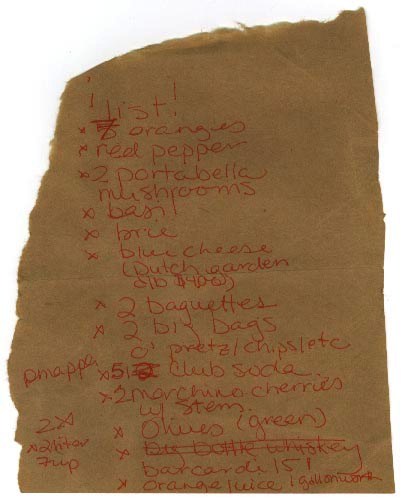 ! list!
x 8 oranges
x red pepper
x 2 portabella
mushrooms
x basil
x brie
x blue cheese
(Dutch garden
x 2 baguettes
x 2 big bags
o' pretz/chips/etc
x 5 club soda
x 2 marchino cherries
w/ stem.
x Olives (green)
x big bottle whiskey
barcardi 151
x orange juice 1 gallon
2x
x 2 liter
7up